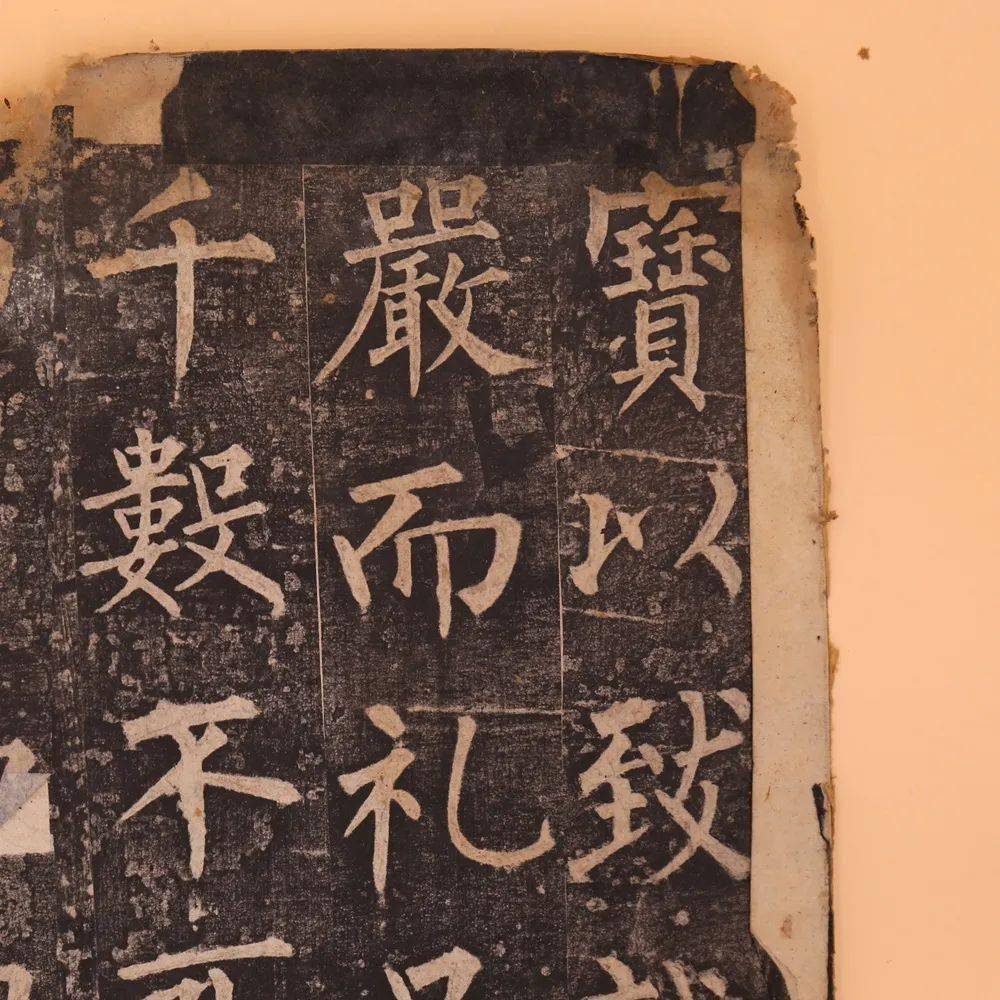 寶以致
嚴而礼
千數不可